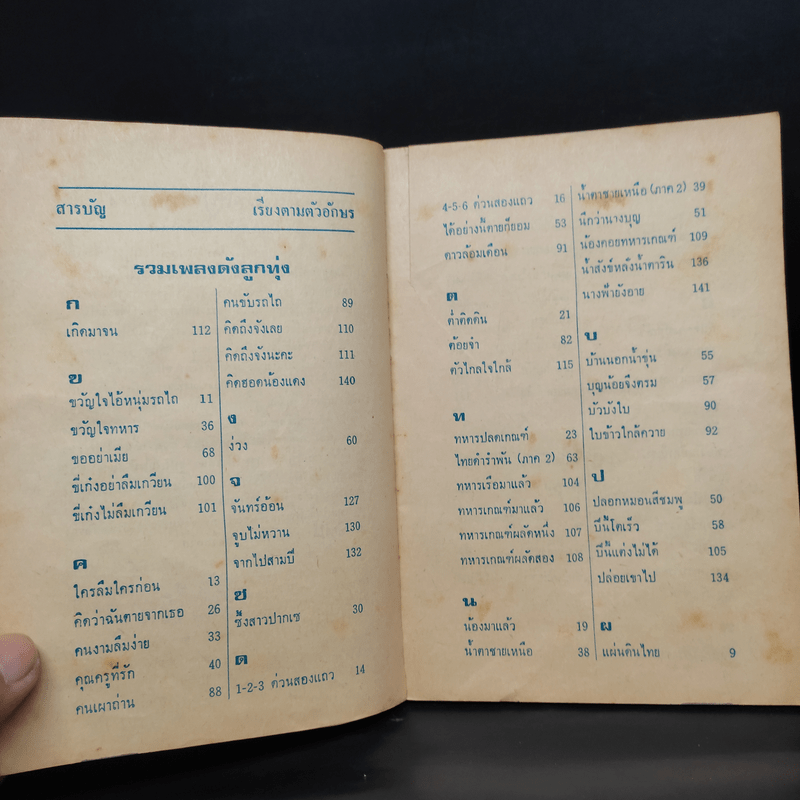 สารบัญ เรียงตามตัวอักษร
รวมเพลงดังลูกทุ่ง
ก
เกิดมาจน 112
ข
ขวัญใจไอ้หนุ่มรถไถ 11
ขวัญใจทหาร 36
ขออย่าเมีย 68
ขี่เก๋งอย่าลืมเกวียน 100
ขี่เก๋งไม่ลืมเกวียน 101
ค
ใครลืมใครก่อน 13
คิดว่าฉันตายจากเธอ 26
คนงามลืมง่าย 33
คุณครูที่รัก 40
คนเผาถ่าน 88
คนขับรถไถ 89
คิดถึงจังเลย 110
คิดถึงจังนะคะ 111
คิดฮอดน้องแดง 140
ง
ง่วง 60
จ
จันทร์อ้อน 127
จูบไม่หวาน 130
จากไปสามปี 132
ซ
ซึ้งสาวปากเซ 30
ด
1-2-3 ด่วนสองแถว 14
4-5-6 ด่วนสองแถว 16
ได้อย่างนี้ตายก็ยอม 53
ดาวล้อมเดือน 91
ต
ต่ำติดดิน 21
ต้อยจ๋า 82
ตัวไกลใจใกล้ 115
ท
ทหารปลดเกณฑ์ 23
ไทยดำรำพัน (ภาค 2) 63
ทหารเรือมาแล้ว 104
ทหารเกณฑ์มาแล้ว 106
ทหารเกณฑ์ผลัดหนึ่ง 107
ทหารเกณฑ์ผลัดสอง 108
น
น้องมาแล้ว 19
น้ำตาชายเหนือ 38
น้ำตาชายเหนือ (ภาค 2) 39
นึกว่านางบุญ 51
น้องคอยทหารเกณฑ์ 109
น้ำสังข์หลั่งน้ำตาริน 136
นางฟ้ายังอาย 141
บ
บ้านนอกน้ำขุ่น 55
บุญน้อยจึงตรม 57
บัวบังใบ 90
ใบข้าวใกล้ควาย 92
ป
ปลอกหมอนสีชมพู 50
ปีนี้โตเร็ว 58
ปีนี้แต่งไม่ได้ 105
ปล่อยเขาไป 134
ผ
แผ่นดินไทย 9